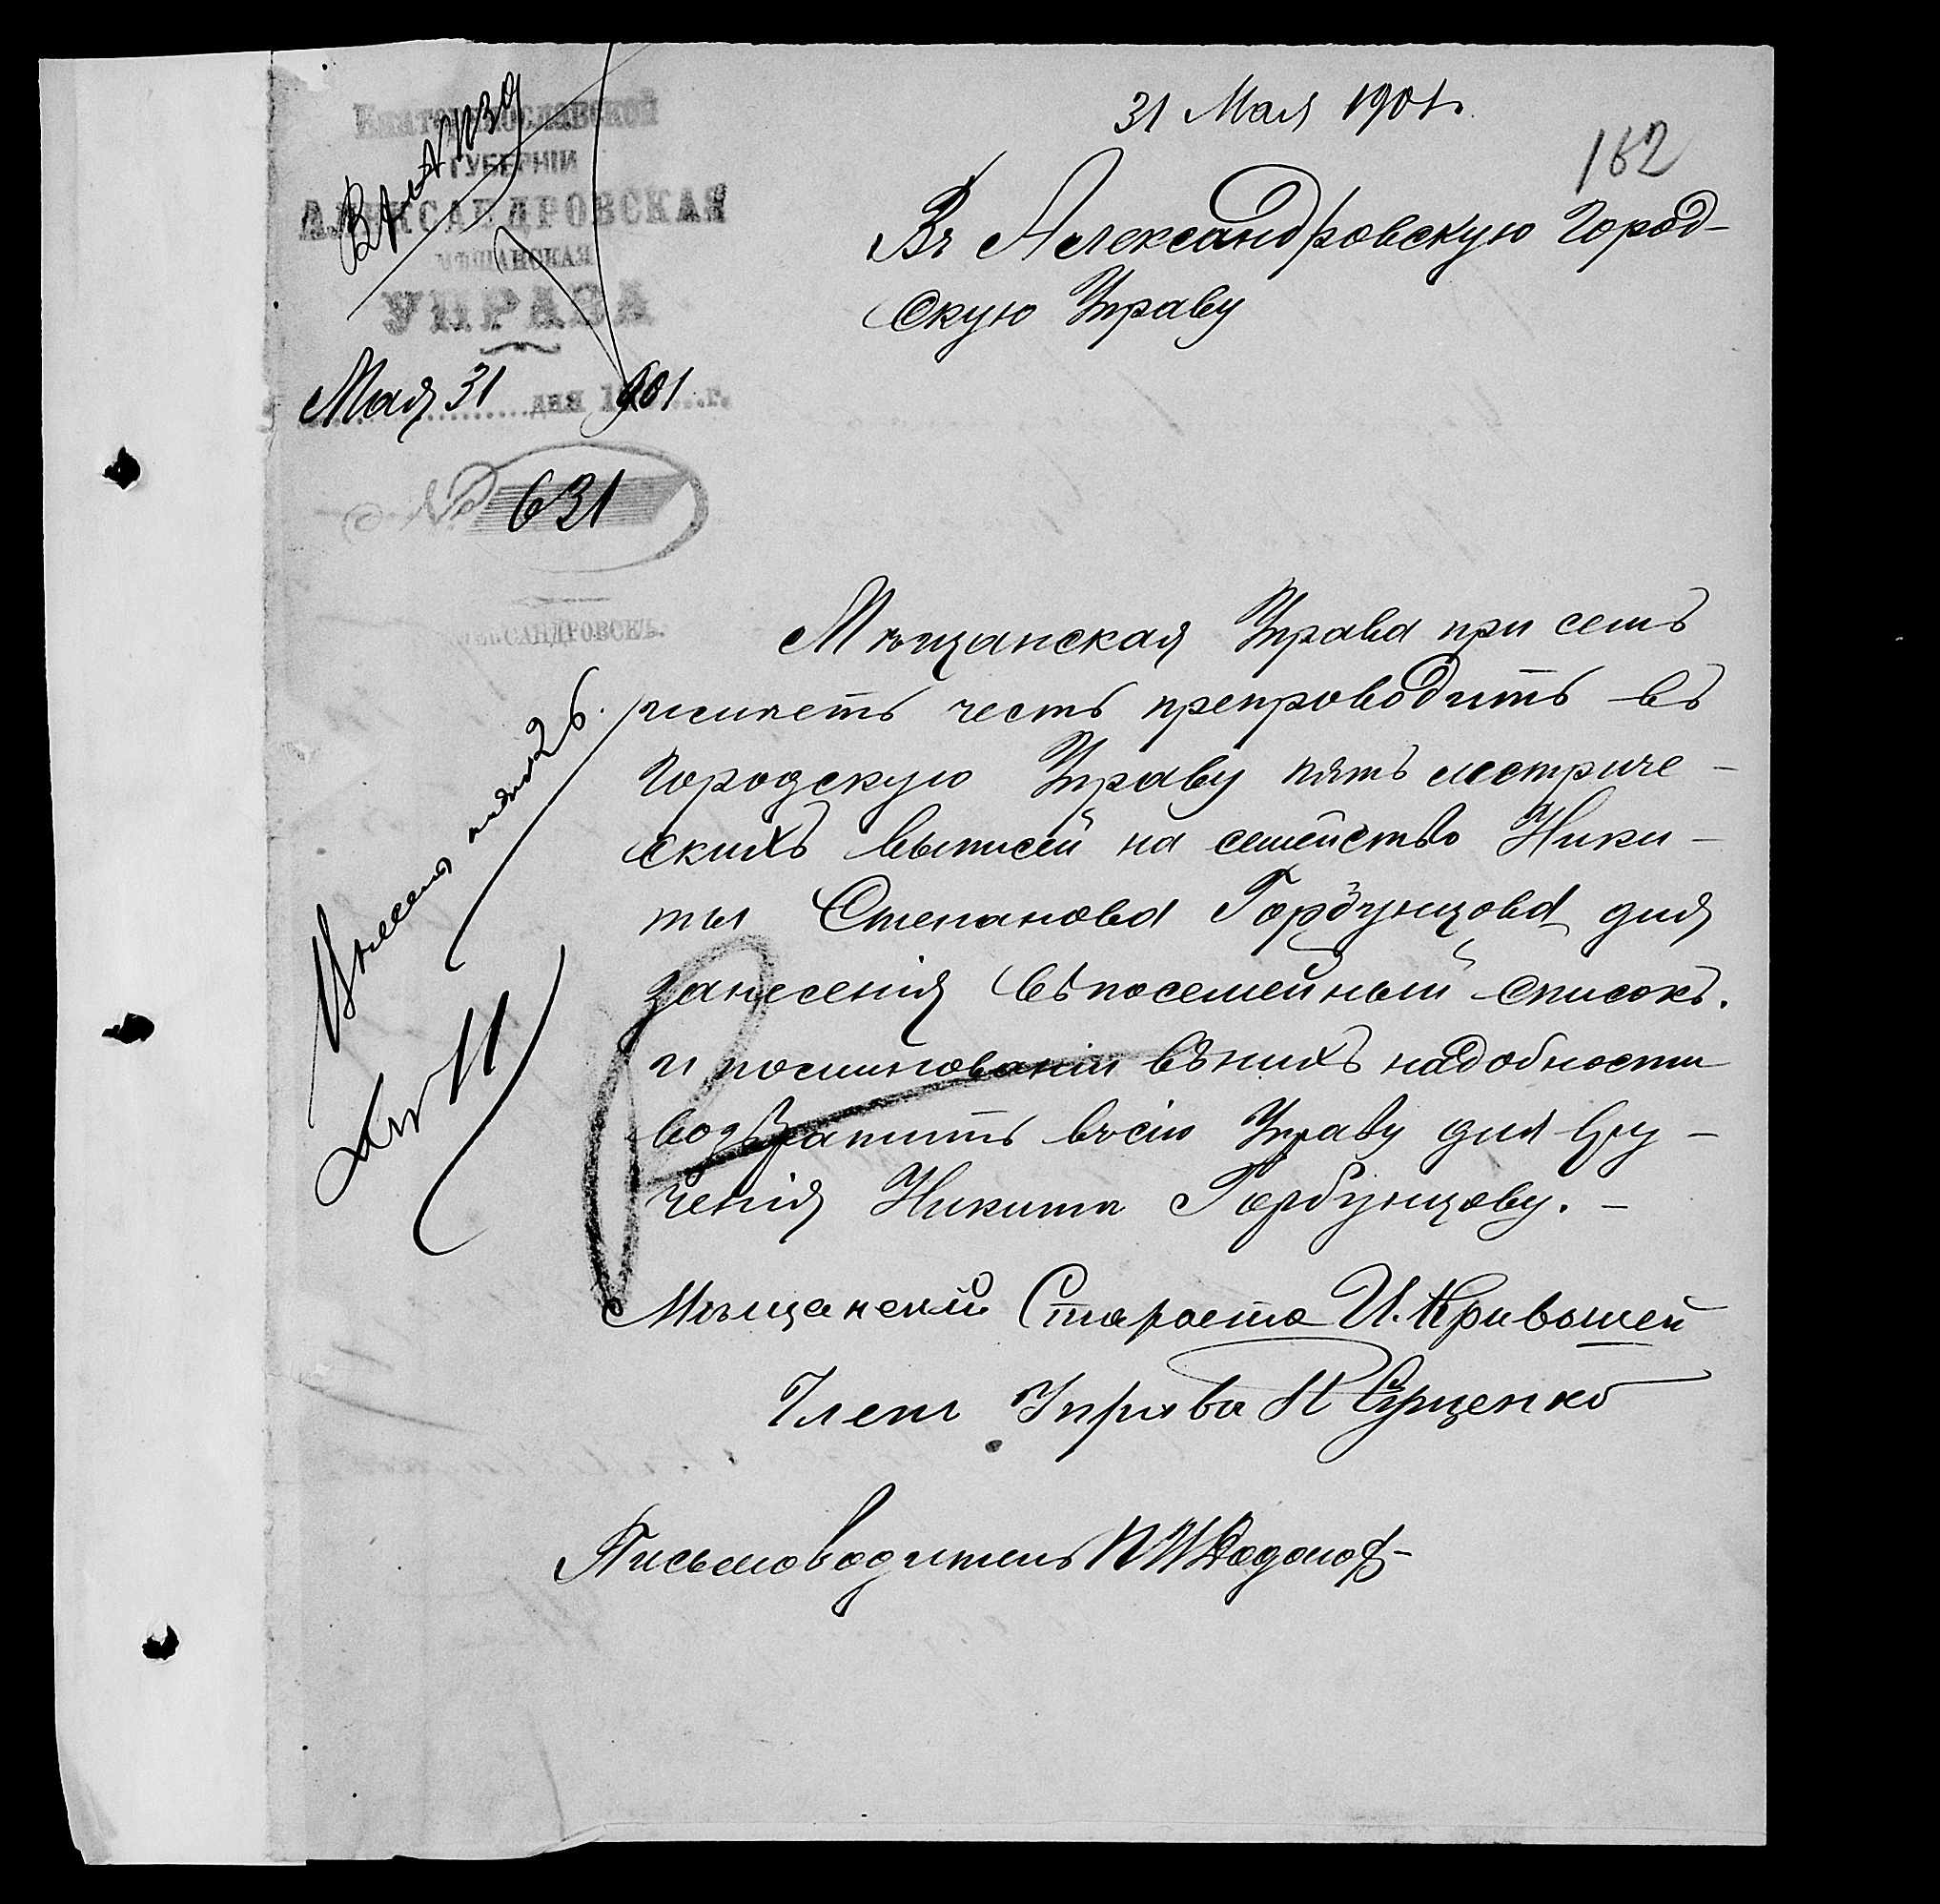 31 Мая 1901 г.
162
Екатеринославской
ГУБЕРНІИ
АЛЕКСАНДРОВСКАЯ
МѢЩАНСКАЯ
УПРАВА
Мая 31 дня 1901 г.
№ 631
АЛЕКСАНДРОВСКЪ.
Въ Александровскую Город-
скую Управу
Мѣщанская Управа при семъ
имѣетъ честь препроводить въ
Городскую Управу пять метриче-
скихъ выписей на семейство Ники-
ты Степанова Горбунцова для
занесенія въ посемейный списокъ.
и по минованіи въ нихъ надобности
возвратить въ сію Управу для вру-
ченія Никитѣ Горбунцову. -
Мѣщанскій Староста И. Кривошей
Членъ Управы
Письмоводитель